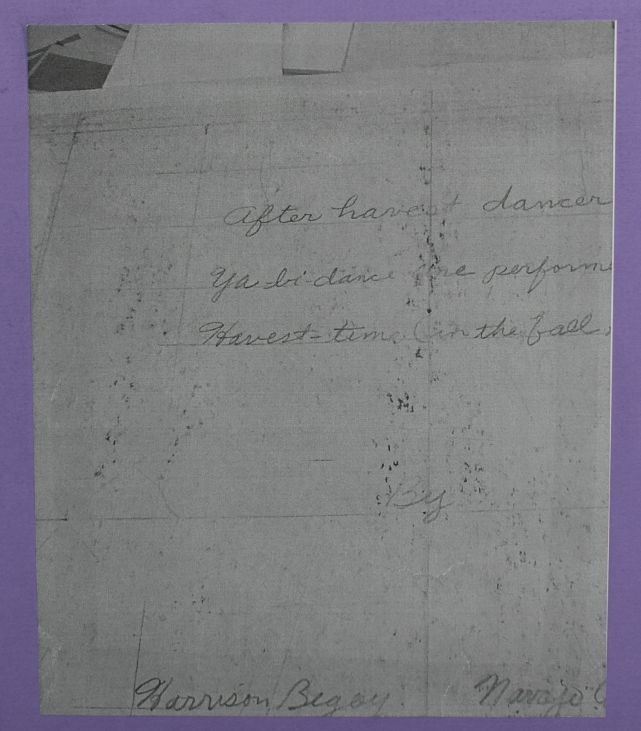 After havest dancer
Ya-bi-dance are perform
Havest-time (in the fall.
By
Harrison Begay Navajo